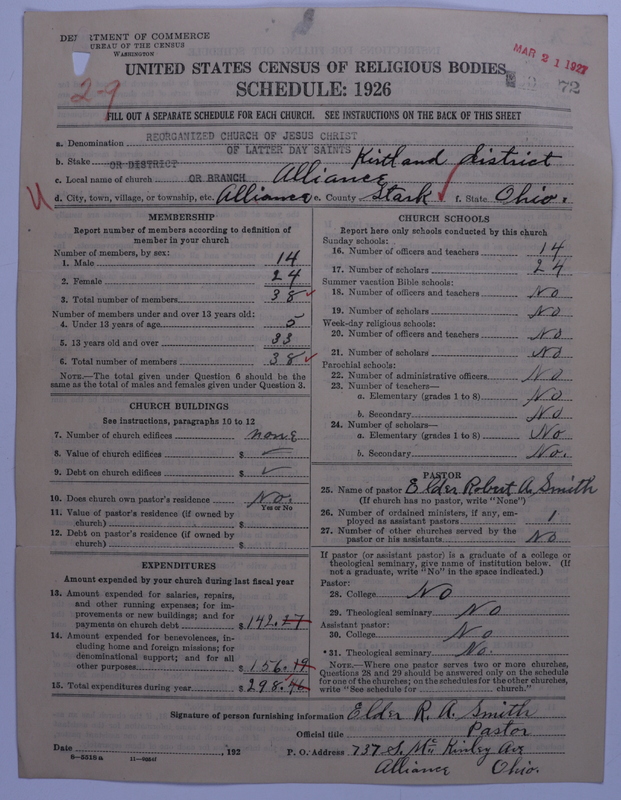 DEPARTMENT OF COMMERCE
BUREAU OF THE CENSUS
WASHINGTON
MAR 21 1927
UNITED STATES CENSUS OF RELIGIOUS BODIES
SCHEDULE: 1926
72
2-9
FILL OUT A SEPARATE SCHEDULE FOR EACH CHURCH. SEE INSTRUCTIONS ON THE BACK OF THIS SHEET
a. Denomination REORGANIZED CHURCH OF JESUS CHRIST
OF LATTER DAY SAINTS
b. Stake OR DISTRICT Kirtland District
c. Local name of church OR BRANCH Alliance
d. City, town, village, or township, etc. Alliance e. County Stark f. State Ohio.
MEMBERSHIP
Report number of members according to definition of
member in your church
Number of members, by sex:
1. Male 14
2. Female 24
3. Total number of members 38
Number of members under and over 13 years old:
4. Under 13 years of age 5
5. 13 years old and over 33
6. Total number of members 38
NOTE.—The total given under Question 6 should be the
same as the total of males and females given under Question 3.
CHURCH BUILDINGS
See instructions, paragraphs 10 to 12
7. Number of church edifices none
8. Value of church edifices $ ✓
9. Debt on church edifices $ ✓
10. Does church own pastor's residence No.
Yes or No
11. Value of pastor's residence (if owned by
church) $
12. Debt on pastor's residence (if owned by
church) $
EXPENDITURES
Amount expended by your church during last fiscal year
13. Amount expended for salaries, repairs,
and other running expenses; for im-
provements or new buildings; and for
payments on church debt $ 142.27
14. Amount expended for benevolences, in-
cluding home and foreign missions; for
denominational support; and for all
other purposes $ 156.19
15. Total expenditures during year $ 298.46
CHURCH SCHOOLS
Report here only schools conducted by this church
Sunday schools:
16. Number of officers and teachers 14
17. Number of scholars 24
Summer vacation Bible schools:
18. Number of officers and teachers No
19. Number of scholars No
Week-day religious schools:
20. Number of officers and teachers No
21. Number of scholars No
Parochial schools:
22. Number of administrative officers No
23. Number of teachers—
a. Elementary (grades 1 to 8) No
b. Secondary No
24. Number of scholars—
a. Elementary (grades 1 to 8) No
b. Secondary No.
PASTOR
25. Name of pastor Elder Robert A. Smith
(If church has no pastor, write "None")
26. Number of ordained ministers, if any, em-
ployed as assistant pastors 1
27. Number of other churches served by the
pastor or his assistants No
If pastor (or assistant pastor) is a graduate of a college or
theological seminary, give name of institution below. (If
not a graduate, write "No" in the space indicated.)
Pastor:
28. College No
29. Theological seminary No
Assistant pastor:
30. College No
31. Theological seminary No.
NOTE.—Where one pastor serves two or more churches,
Questions 28 and 29 should be answered only on the schedule
for one of the churches; on the schedules for the other churches,
write "See schedule for ________ church."
Signature of person furnishing information Elder R. A. Smith
Official title Pastor
Date ________, 192 P. O. Address 737 S. Mc Kinley Ave
8-5316a
Alliance Ohio.